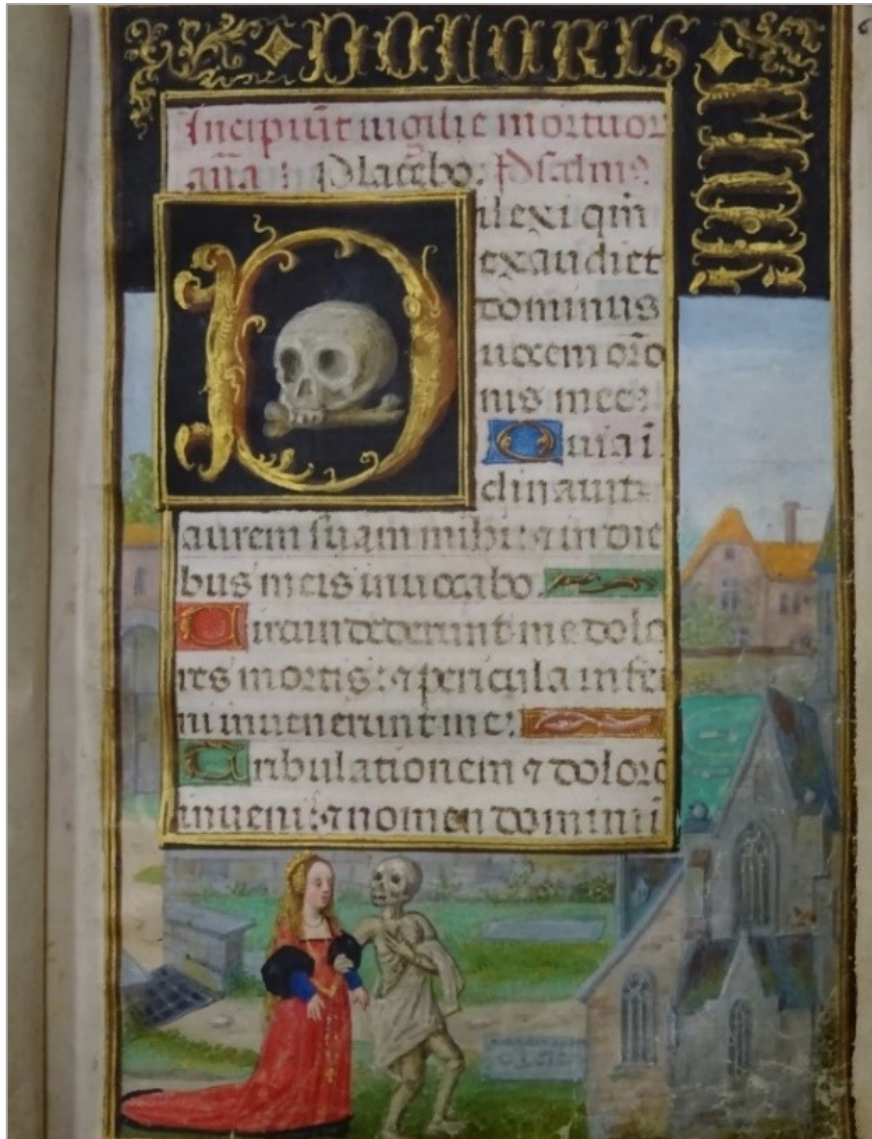 DOLORIS
MOR
Incipiūt vigilie mortuor
aña Placebo. Psalmꝰ
Dilexi qm̄
exaudiet
dominus
vocem orō
nis mee:
Quia ī
clinavit
aurem suam mihi: ⁊ in die
bus meis invocabo.
Circumdederunt me dolo
res mortis: ⁊ pericula infer
ni invenerunt me:
Tribulationem ⁊ dolorē
inveni: ⁊ nomen domini i